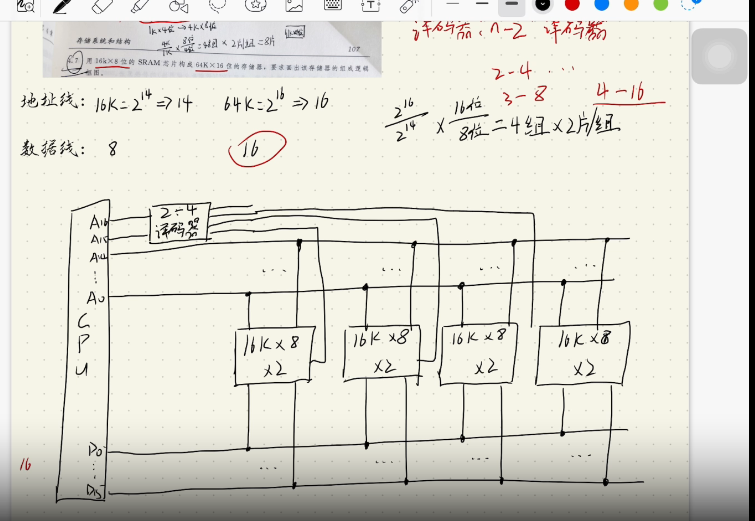 1K×4位 → 4K×8位
存储系统和结构
4K/1K × 8位/4位 = 4组 × 2片/组 = 8片
107
用 16k×8 位的 SRAM 芯片构成 64K×16 位的存储器，要求画出该存储器的组成逻辑
框图。
译码器: n-2 译码器
2-4 ...
3-8 4-16
地址线: 16K=2^14 ⇒ 14 64K=2^16 ⇒ 16
2^16/2^14 × 16位/8位 = 4组×2片/组
数据线: 8 16
A16
A15
A14
⋮
A0
2-4
译码器
... ... ... ...
C
P
U
16K×8
×2
16K×8
×2
16K×8
×2
16K×8
×2
16
D0
⋮
D15
... ... ... ...